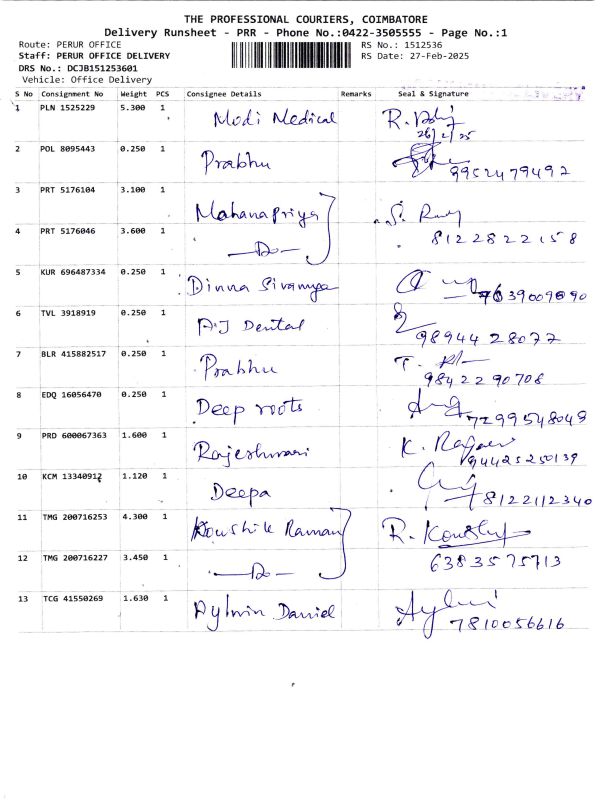 THE PROFESSIONAL COURIERS, COIMBATORE
Delivery Runsheet - PRR - Phone No.:0422-3505555 - Page No.:1
Route: PERUR OFFICE
RS No.: 1512536
Staff: PERUR OFFICE DELIVERY
RS Date: 27-Feb-2025
DRS No.: DCJB151253601
Vehicle: Office Delivery
S No Consignment No Weight PCS Consignee Details Remarks Seal & Signature
1 PLN 1525229 5.300 1 Modi Medical R.
26/2/25
2 POL 8095443 0.250 1 Prabhu
9952479492
3 PRT 5176104 3.100 1 Mahanapriya S.
4 PRT 5176046 3.600 1 —Do— 8122822158
5 KUR 696487334 0.250 1 Dinna Sivamya
6 TVL 3918919 0.250 1 A.J Dental
98944 28077
7 BLR 415882517 0.250 1 Prabhu T.
98422 90708
8 EDQ 16056470 0.250 1 Deep roots
7299548049
9 PRD 600067363 1.600 1 Rajeshwari K.
94425250139
10 KCM 13340912 1.120 1 Deepa
8122112340
11 TMG 200716253 4.300 1 Koushik Raman R.
12 TMG 200716227 3.450 1 —Do— 6383575713
13 TCG 41550269 1.630 1 Aylwin Daniel
7810056616